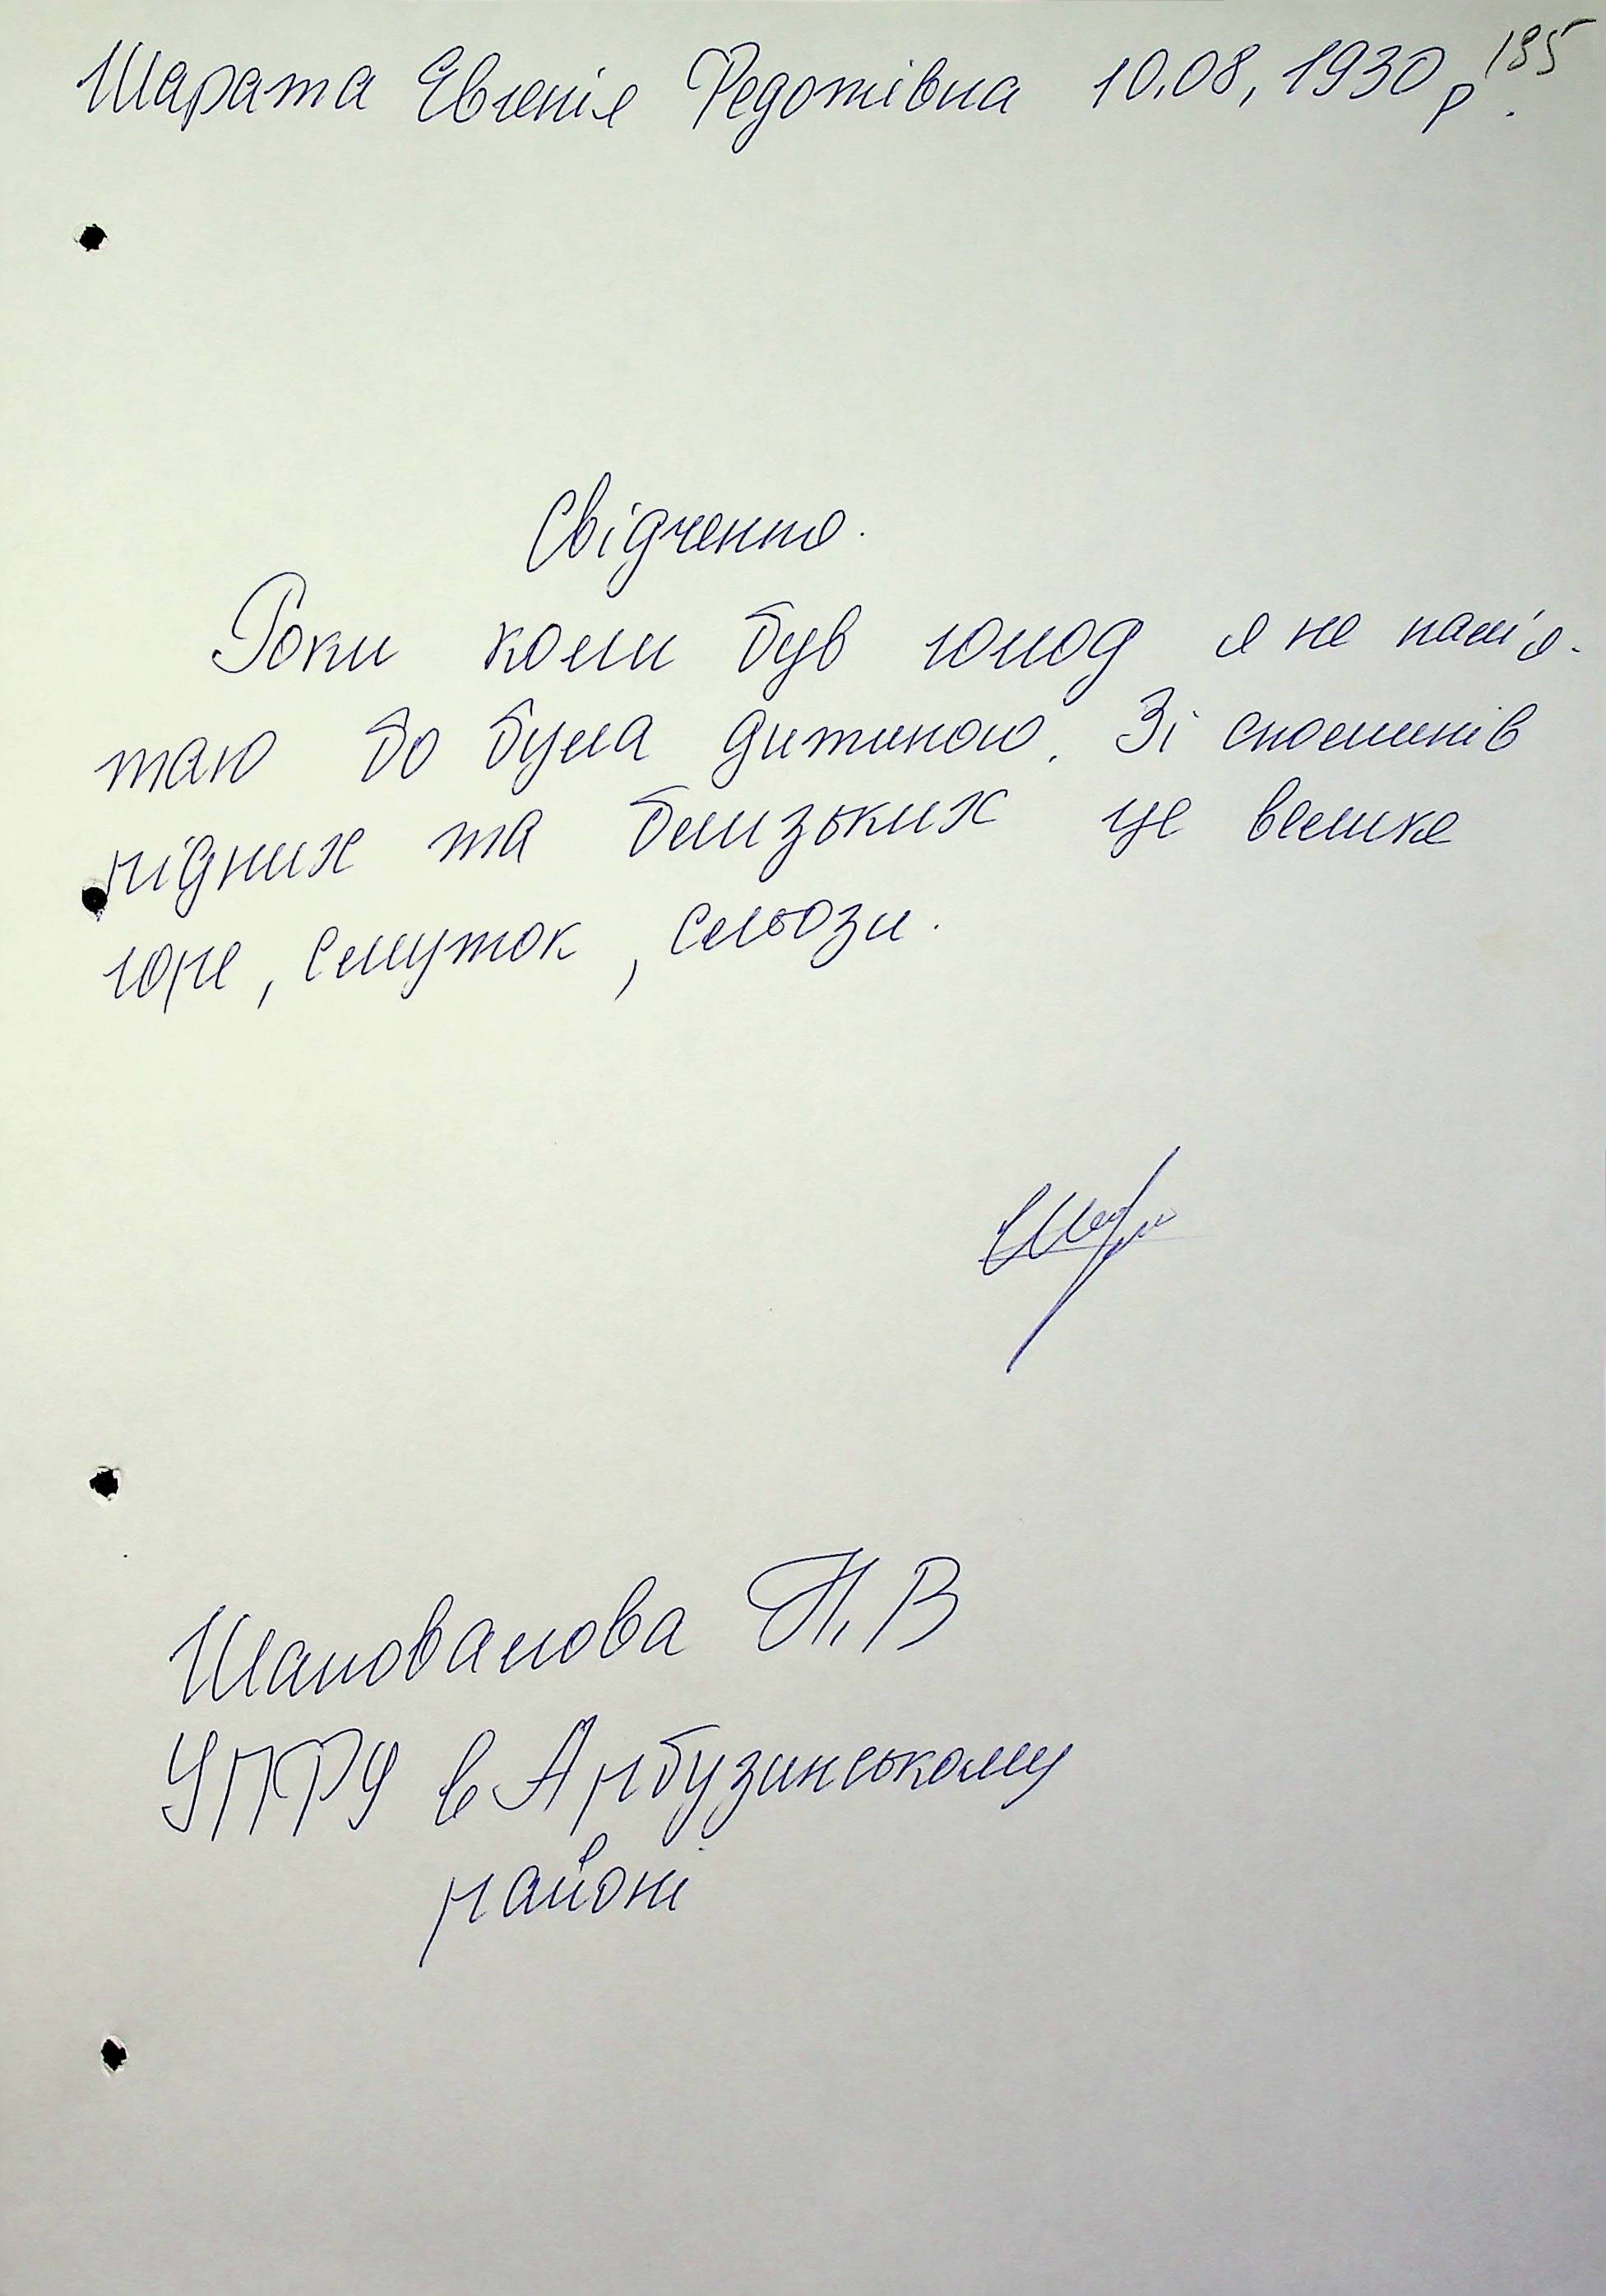 185
Шарата Евгенія Федотівна 10.08, 1930 р.
Свідчення.
Роки коли був голод я не пам'я-
таю бо була дитиною. Зі споминів
рідних та близьких це велике
горе, смуток, сльози.
Шаповалова Н. В
УПФУ в Арбузинському
районі